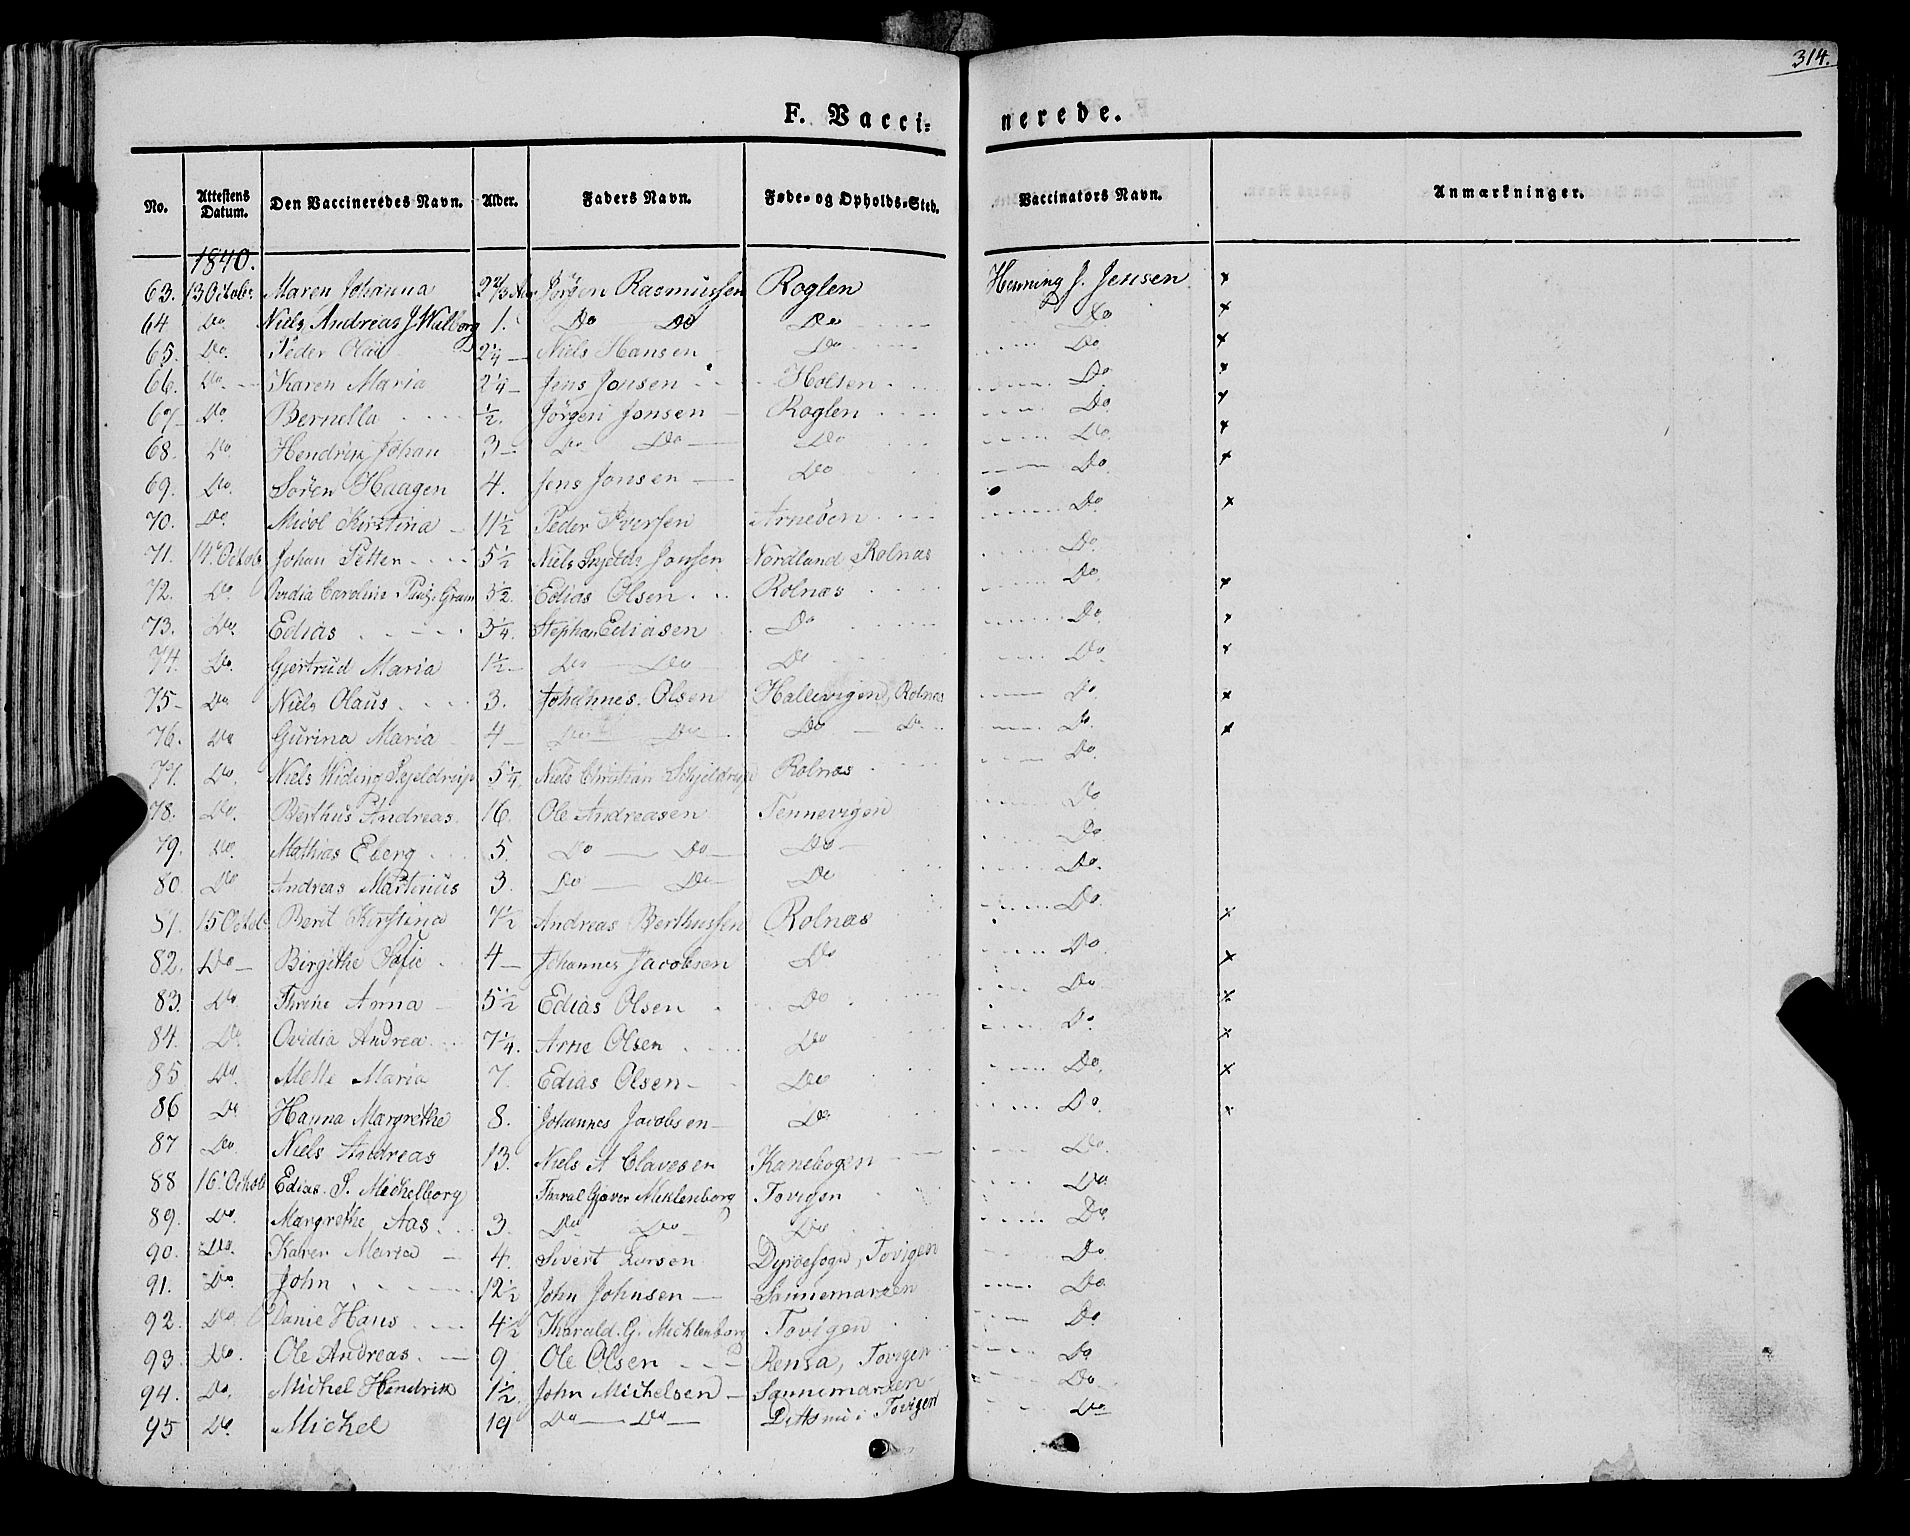 314.
F. Vacci= nerede.
No. Attestens Datum. Den Vaccineredes Navn. Alder. Faders Navn. Føde- og Opholds-Sted. Vaccinators Navn. Anmærkninger.
1840.
63. 13 Octobr Maren Johanna Jørgen Rasmussen Roglen Henning J. Jensen ×
64 Do Niels Andreas J. Walborg 1. Do Do Do Do ×
65. Do. Peder Olai 2¼ Niels Hansen Do Do ×
66. Do. Karen Maria 2¼ Jens Jonsen Holsen Do ×
67 Do Bernella ½. Jørgen Jonsen Roglen Do. ×
68. Do Hendrik Johan 3 Do Do Do Do. ×
69. Do. Søren Haagen 4. Jens Jonsen Do Do. ×
70. Do. Kirstina 11½ Peder Iversen Arnøen Do ×
71. 14 Octob Johan Petter 5½ Niels Jonsen Nordland Rolnæs Do.
72. Do. Caroline Gram 5½. Edias Olsen Rolnæs Do. ×
73. Do. Edias 3¼. Stephan Ediasen Do Do ×
74. Do. Gjertrud Maria 1½ Do Do Do Do ×
75 Do Niels Olaus 3. Johannes Olsen Hallevigen, Rolnæs Do ×
76. Do Gurina Maria 4 Do Do Do Do Do. ×
77. Do. Niels Widing Skjeldrup 5¼. Niels Christian Schjeldrup Rolnæs Do
78. Do. Berthus Andreas 16. Ole Andreasen Tennevigen Do
79. Do. Mathias Eberg 5. Do Do Do Do
80 Do Andreas Martinus 3. Do Do Do Do.
81. 15 Octob Berit Kirstina 7½ Andreas Berthussen Rolnæs Do ×
82. Do Birgithe Sofie 4 Johannes Jacobsen Do Do ×
83. Do Anna 5½ Edias Olsen Do Do ×
84. Do Ovidia Andrea 7¼. Arne Olsen Do Do. ×
85 Do. Mette Maria 7. Edias Olsen Do Do. ×
86 Do Hanna Margrethe 8. Johannes Jacobsen Do Do. ×
87 Do. Niels Andreas 13. Niels A Clavesen Kanebogen Do.
88 16. Octob Edias. S. Mechelborg Tharal Gjæver Meklenborg Tovigen Do.
89. Do. Margrethe Aas 3. Do Do Do Do.
90. Do. Karen Maria 4. Sivert Dyrøesogn, Tovigen Do
91. Do John 12½ John Johnsen Sannemarken Do.
92. Do Danie Hans 4½ Tharald. G. Micklenborg Tovigen Do.
93. Do. Ole Andreas 9. Ole Olsen Rensa, Tovigen Do
94. Do. Michel Hendrik 1½. John Michelsen Sannemarken Do
95 Do. Michel 19 Do Do Tovigen Do